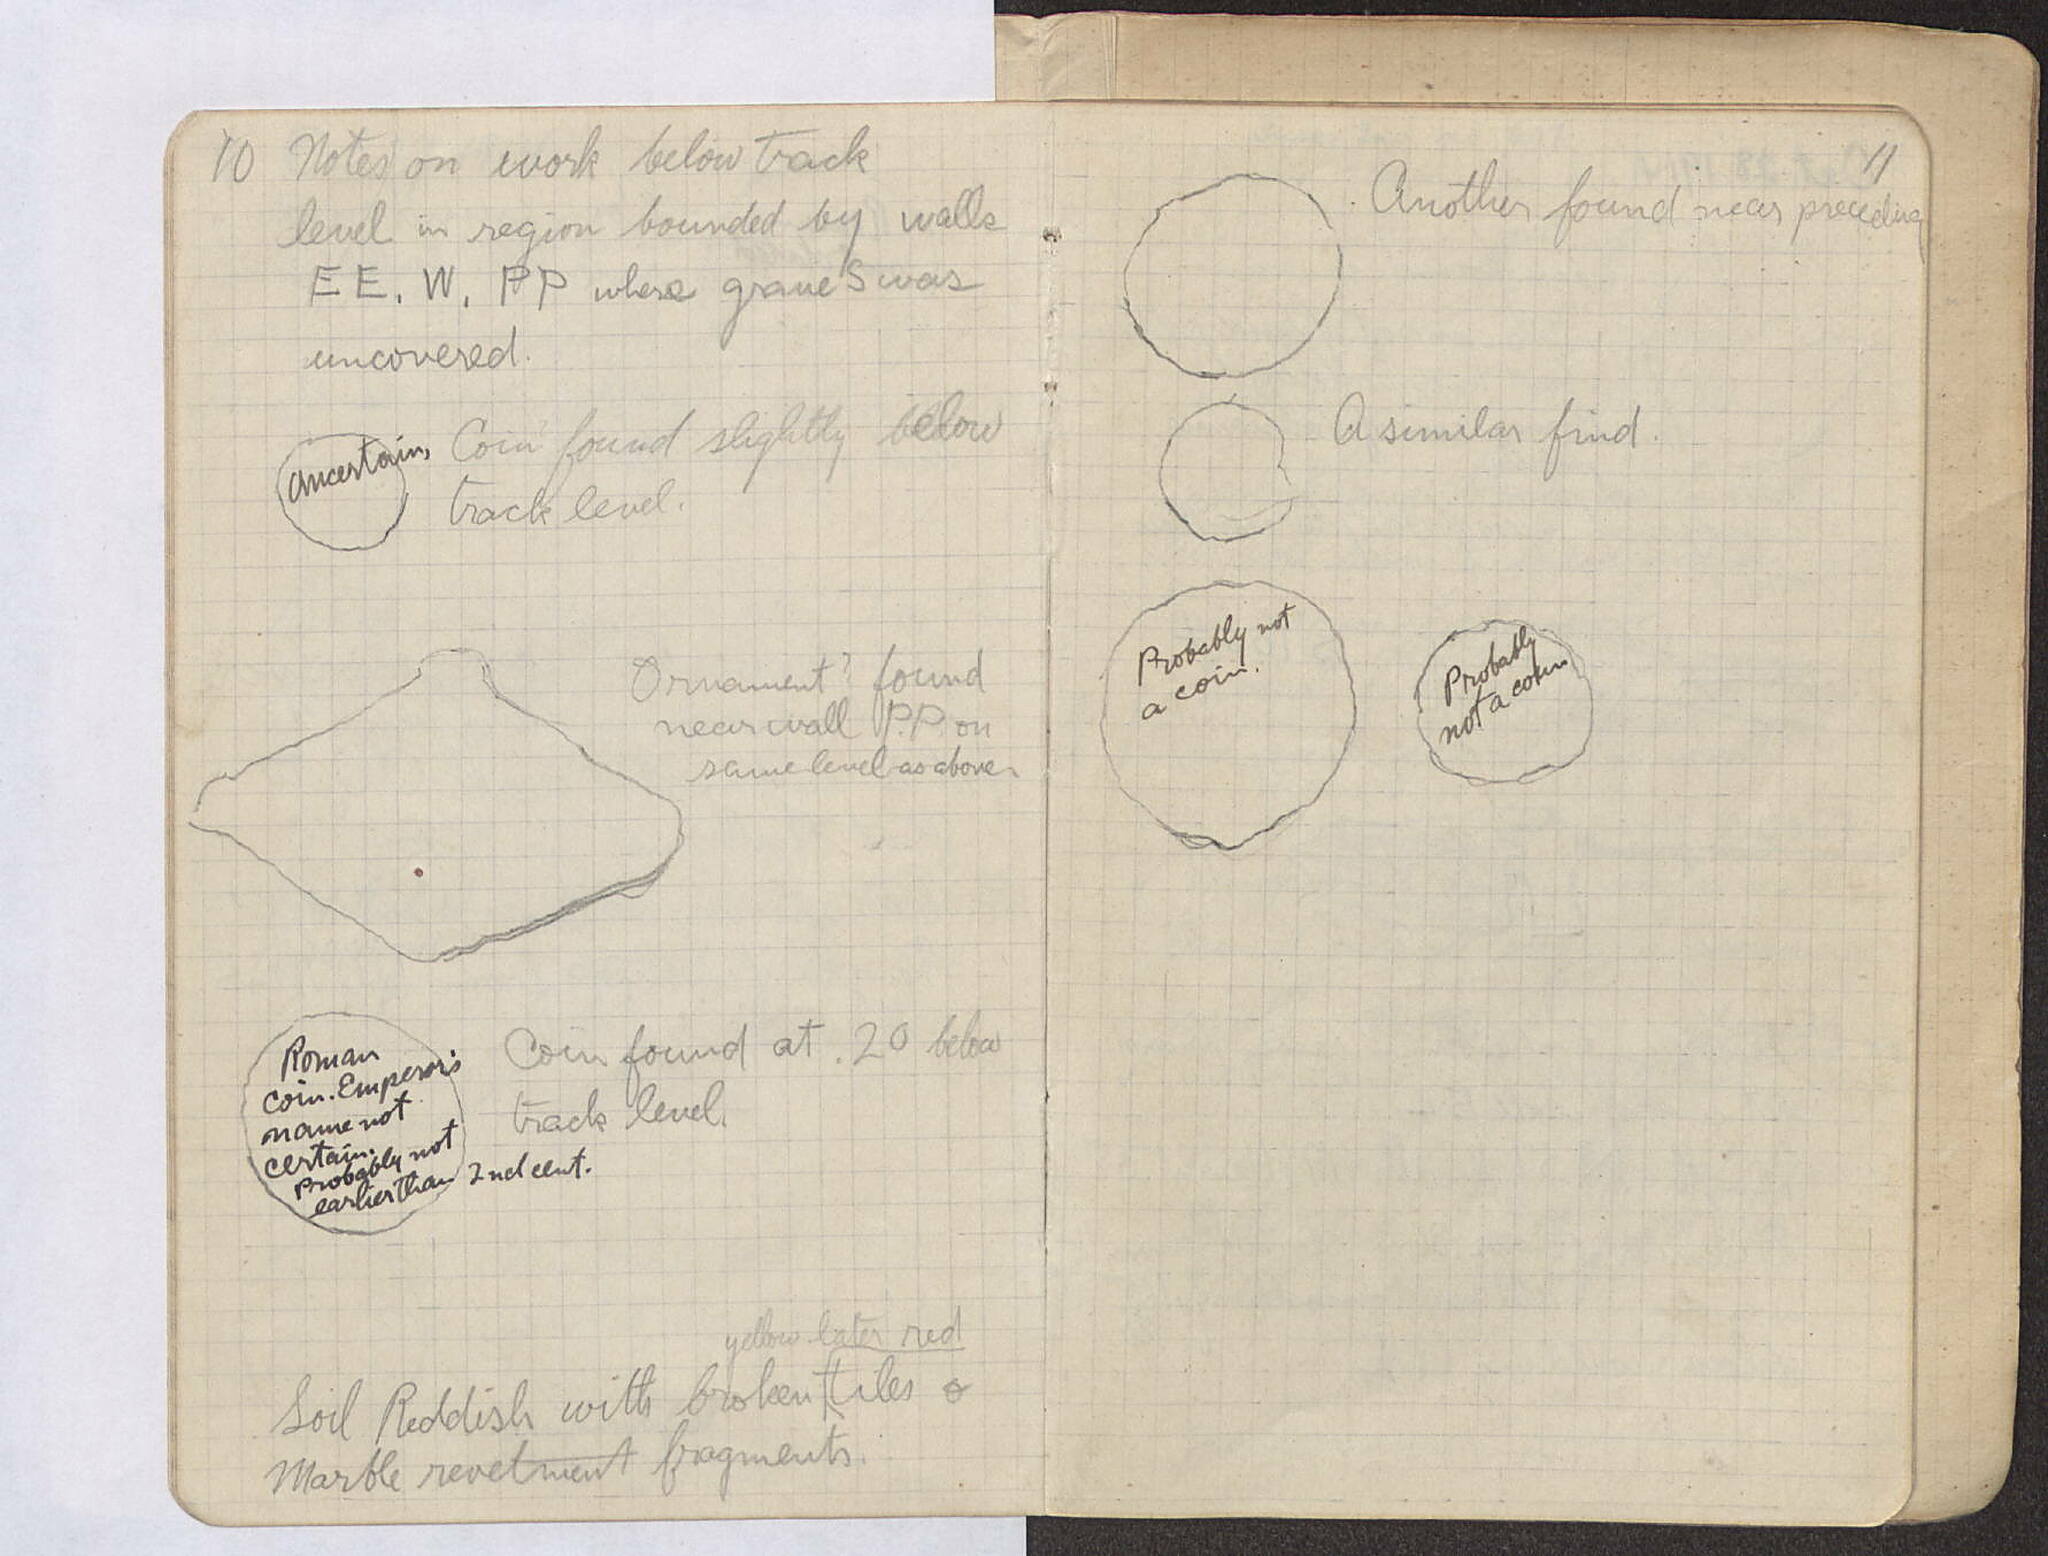 10 Notes on work below track
level in region bounded by walls
EE. W. PP where grave S was
uncovered.
Uncertain.
Coin found slightly below
track level.
Ornament? found
near wall P.P. on
same level as above.
Roman
coin. Emperor's
name not
certain.
Probably not
earlier than 2nd cent.
Coin found at .20 below
track level.
yellow later red
Soil Reddish with broken tiles &
Marble revetment fragments.
11
Another found near preceding
A similar find.
Probably not
a coin.
Probably
not a coin